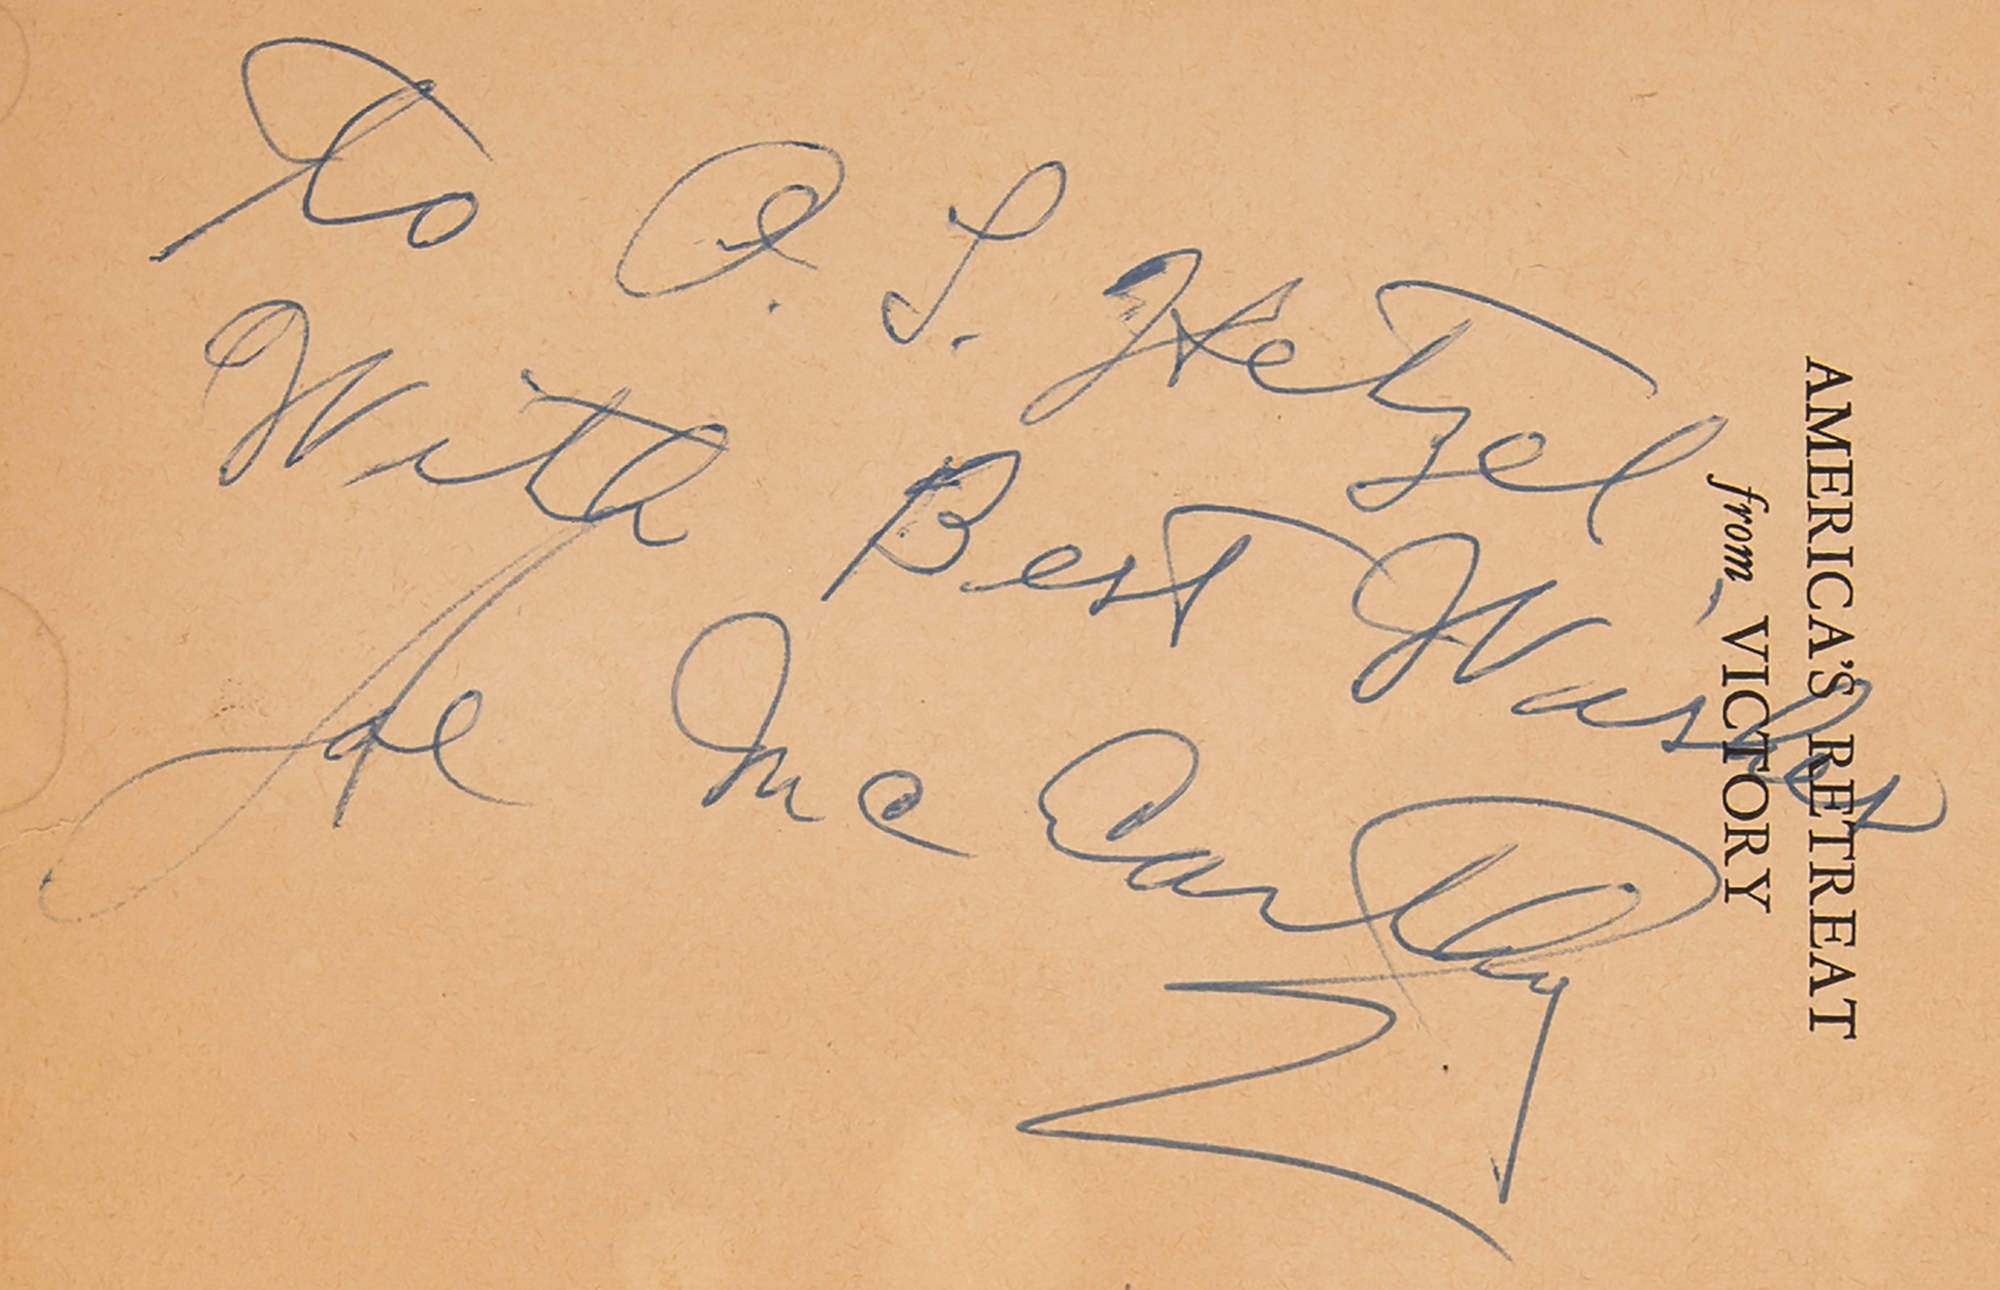 To O. L. Hetzel,
With Best Wishes
Joe McCarthy
AMERICA'S RETREAT
from VICTORY